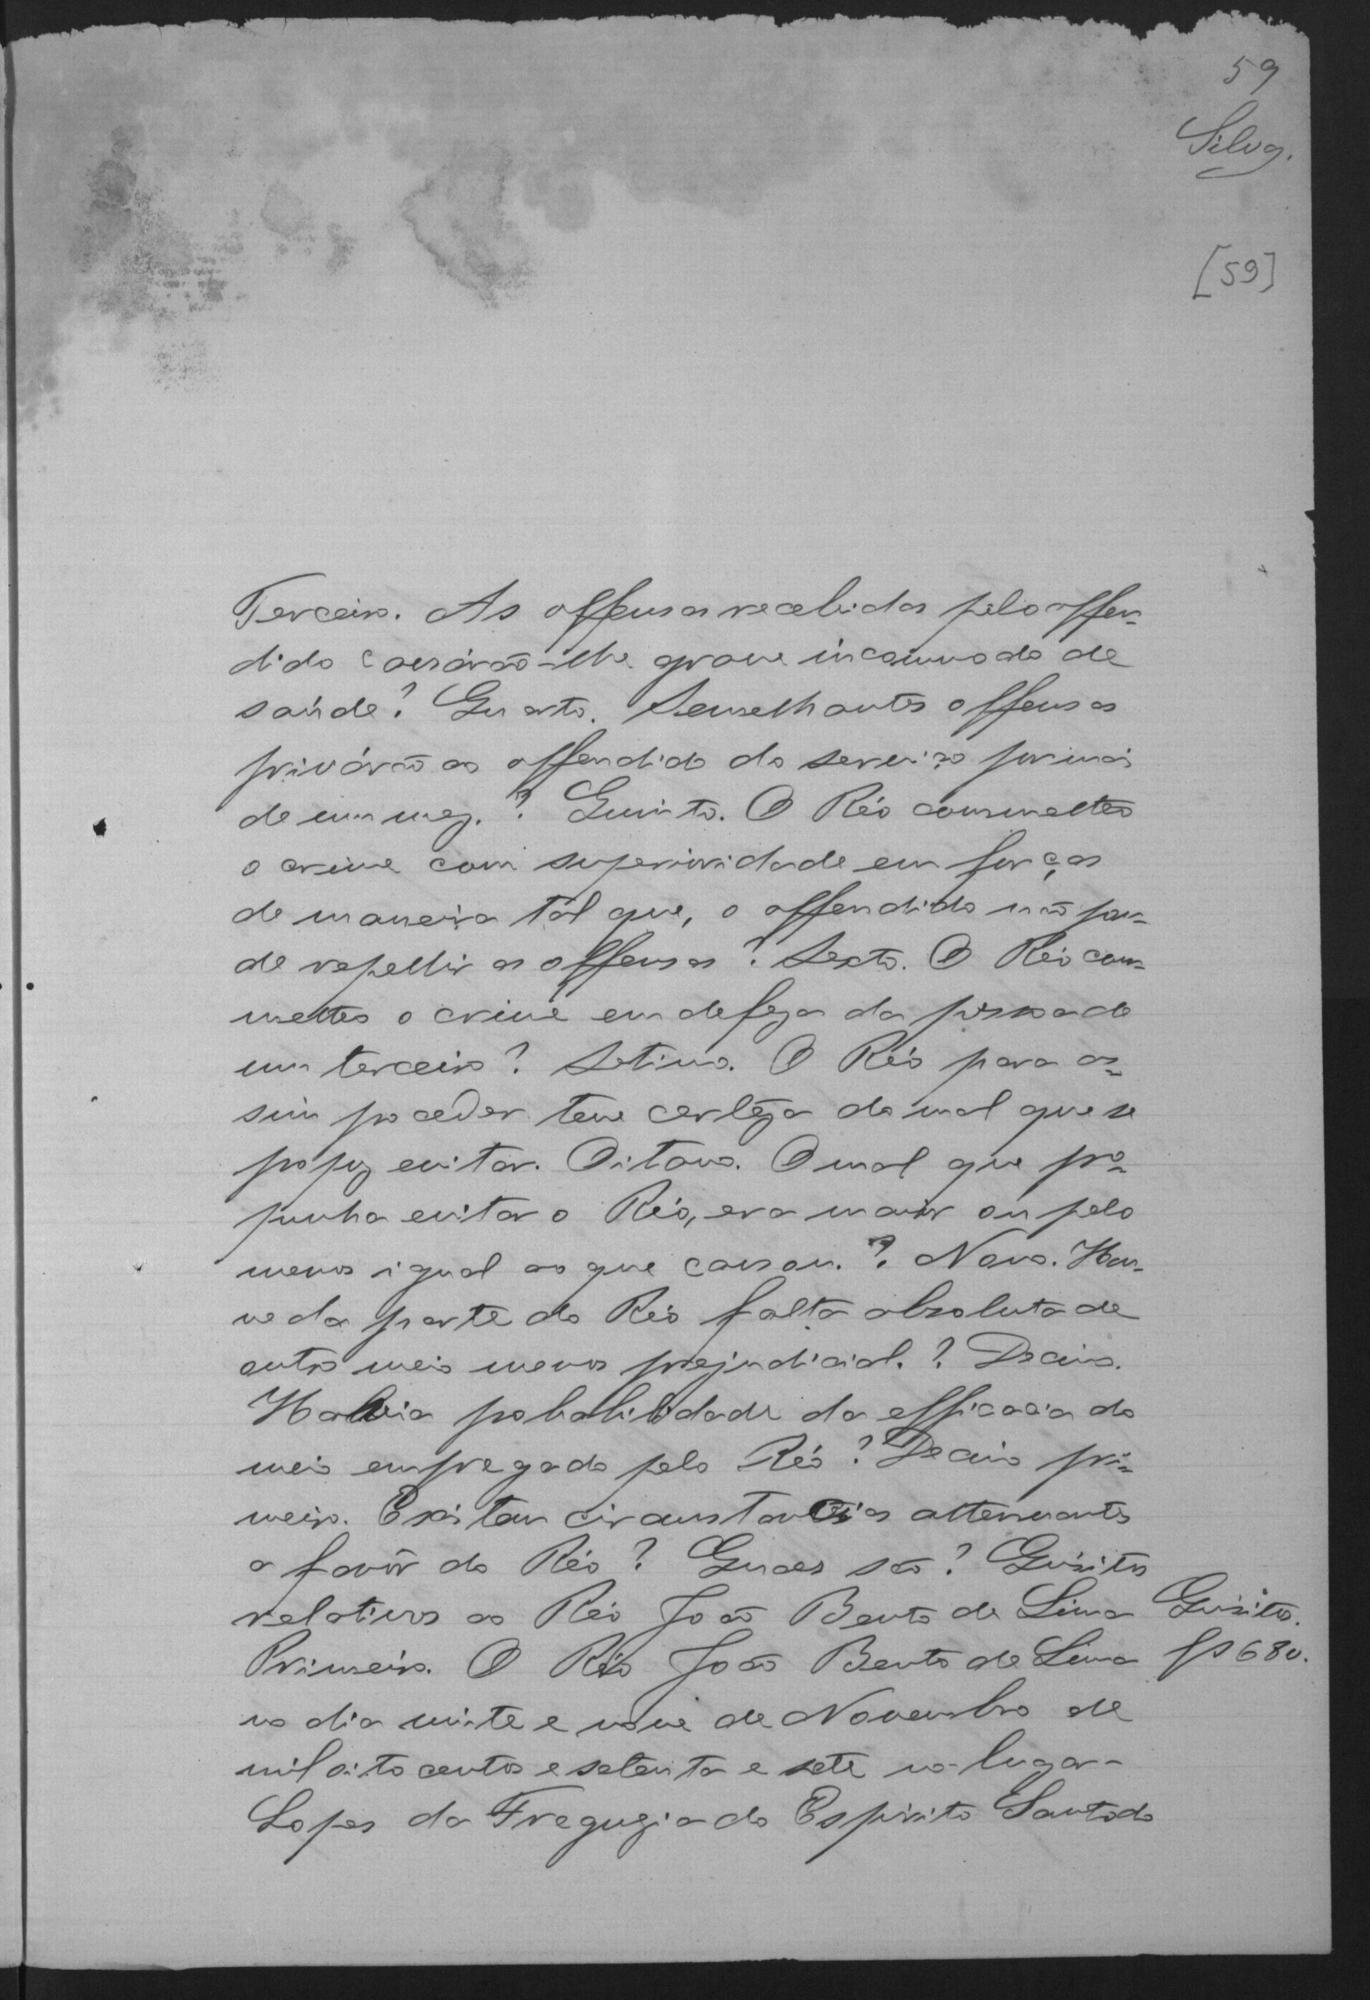 59
Silva.
[59]
Terceiro. As offensas recebidas pelo offen-
dido causárão-lhe grave incommodo de
saúde? Quarto. Semelhantes offensas
privárão ao offendido do serviço por mais
de um mez.? Quinto. O Réo commetteo
o crime com superioridade em forças
de maneira tál que, o offendido não pou-
de repellir as offensas? Sexto. O Réo com-
metteo o crime em defeza da pessoa de
um terceiro? Setimo. O Réo para as-
sim proceder teve certêza do mal que se
propoz evitar. Oitavo. O mal que pro-
punha evitar o Réo, era maior ou pelo
menos igual ao que causou.? Nono. Hou-
ve da parte do Réo falta absoluta de
outro meio menos prejudicial.? Decimo.
Havia probabilidade da efficacia do
meio empregado pelo Réo? Decimo pri-
meiro. Existem circunstancias attenuantes
a favôr do Réo? Quaes são? Quisitos
relativos ao Réo João Bento de Lima
Quisitos.
Primeiro. O Réo João Bento de Lima
fs 680.
no dia vinte e nove de Novembro de
mil oito centos e setenta e sete no lugar-
Lopes da Freguzia do Espirito Santo do